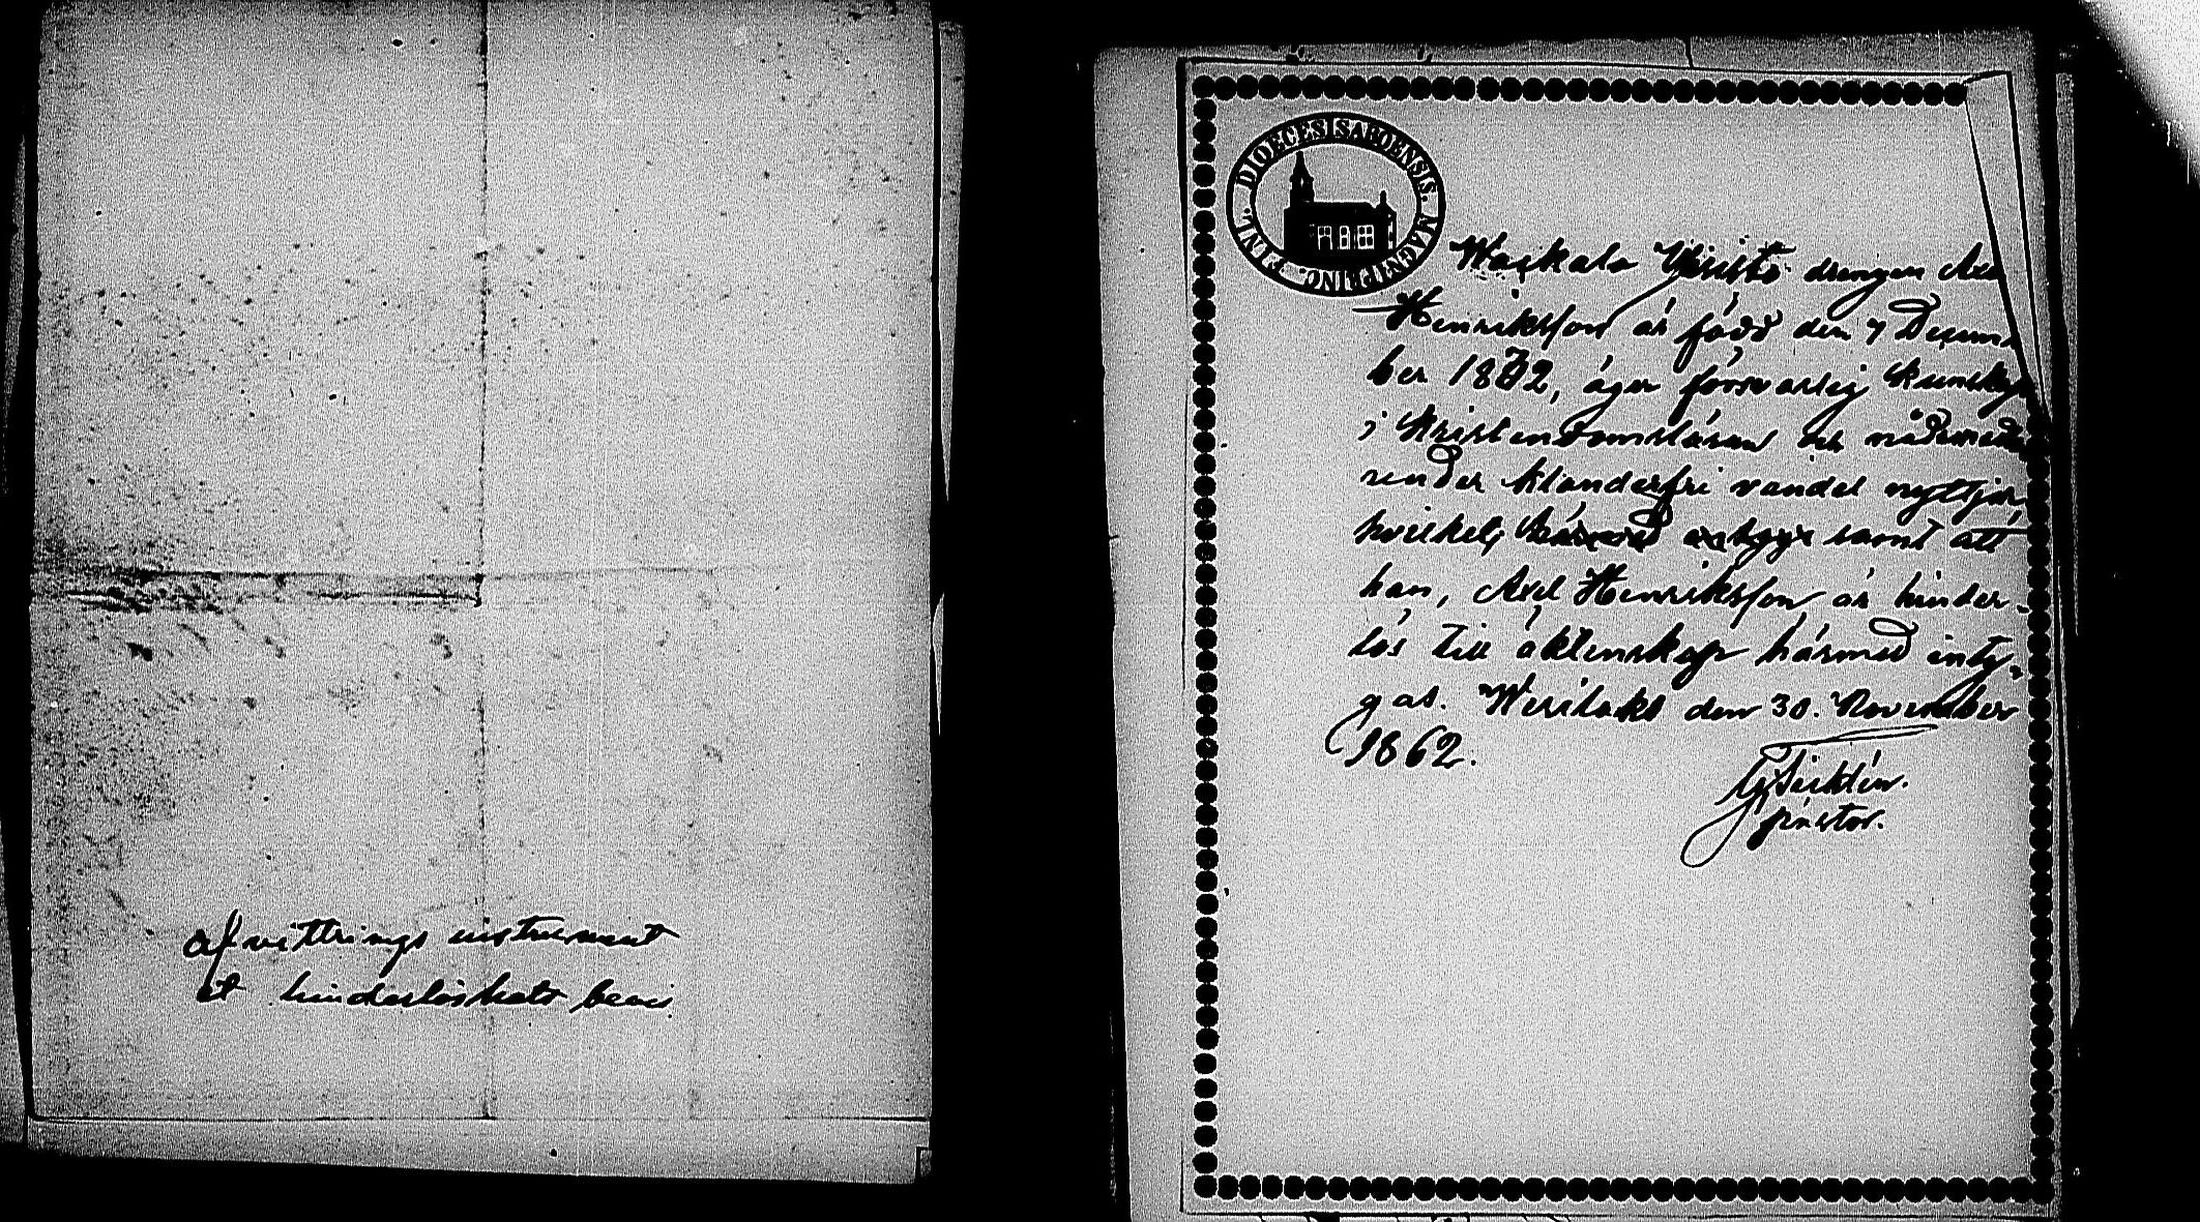 afvittrings instrument
et hinderlöshets bevis.
DIOECESIS ABOENSIS. MAGNI PRINC. FINL.
drengen Axel
Henriksson är född den 7 Decem-
ber 1872, äger försvarlig kunskap
i kristendomsläran och
under klanderfri vandel nyttjar,
hvilket härmed intygs samt att
han, Axel Henriksson är hinder-
lös till äktenskap härmed inty-
gas. den 30. November
1862.
pastor.